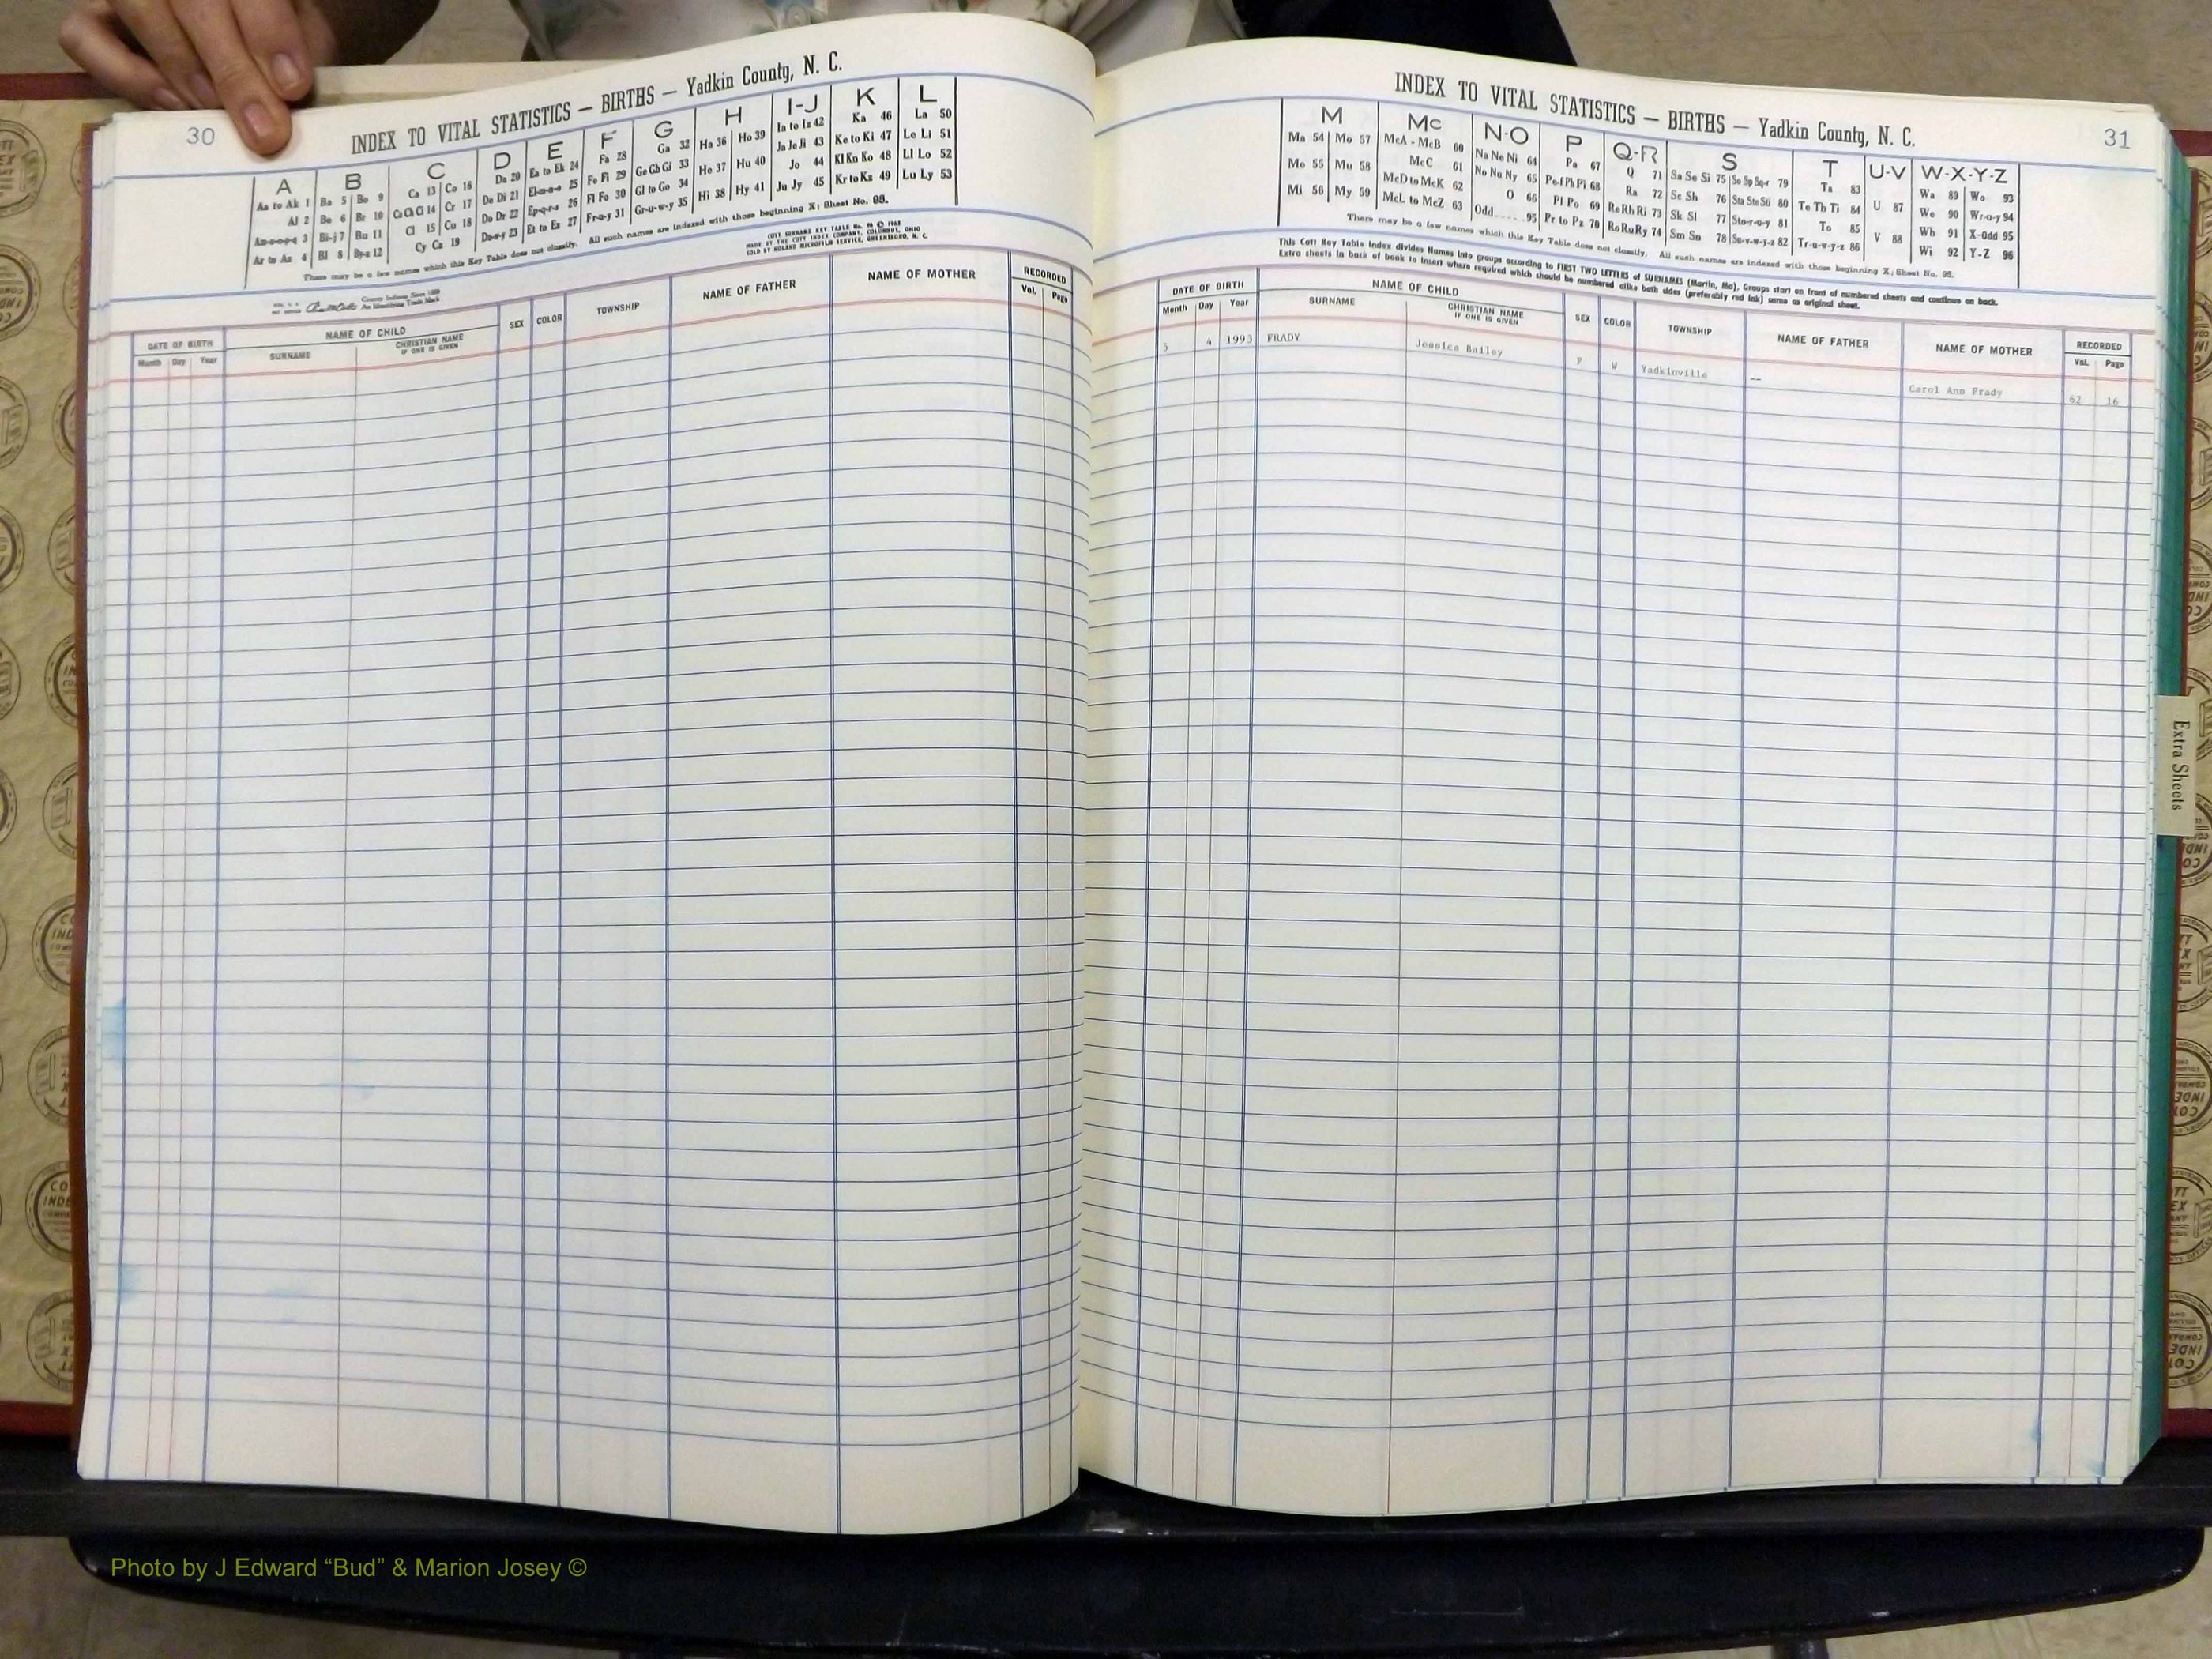 30
INDEX TO VITAL STATISTICS — BIRTHS — Yadkin County, N. C.
A B C D E F G H I-J K L
Aa to Ak 1 Ba 5 Bo 9 Ca 13 Co 16 Da 20 Ea to Ek 24 Fa 28 Ga 32 Ha 36 Ho 39 Ia to Iz 42 Ka 46 La 50
Al 2 Be 6 Br 10 Ce Ch Ci 14 Cr 17 De Di 21 El-m-n-o 25 Fe Fi 29 Ge Gh Gi 33 He 37 Hu 40 Ja Je Ji 43 Ke to Ki 47 Le Li 51
Am-n-o-p-q 3 Bi-j 7 Bu 11 Cl 15 Cu 18 Do Dr 22 Ep-q-r-s 26 Fl Fo 30 Gl to Go 34 Hi 38 Hy 41 Jo 44 Kl Kn Ko 48 Ll Lo 52
Ar to Az 4 Bl 8 By-z 12 Cy Cz 19 Du-w-y 23 Et to Ez 27 Fr-u-y 31 Gr-u-w-y 35 Ju Jy 45 Kr to Kz 49 Lu Ly 53
There may be a few names which this Key Table does not classify. All such names are indexed with those beginning X; Sheet No. 95.
MADE BY THE COTT INDEX COMPANY, COLUMBUS, OHIO
SOLD BY NOLAND MICROFILM SERVICE, GREENSBORO, N. C.
County Indexes Since 1888
An Identifying Trade Mark
DATE OF BIRTH NAME OF CHILD SEX COLOR TOWNSHIP NAME OF FATHER NAME OF MOTHER RECORDED
Month Day Year SURNAME CHRISTIAN NAME IF ONE IS GIVEN Vol. Page
INDEX TO VITAL STATISTICS — BIRTHS — Yadkin County, N. C.
31
M Mc N-O P Q-R S T U-V W-X-Y-Z
Ma 54 Mo 57 McA - McB 60 Na Ne Ni 64 Pa 67 Q 71 Sa Se Si 75 So Sp Sq-r 79 Ta 83 U 87 Wa 89 Wo 93
Me 55 Mu 58 McC 61 No Nu Ny 65 Pe-f Ph Pi 68 Ra 72 Sc Sh 76 Sta Ste Sti 80 Te Th Ti 84 V 88 We 90 Wr-u-y 94
Mi 56 My 59 McD to McK 62 O 66 Pl Po 69 Re Rh Ri 73 Sk Sl 77 Sto-r-u-y 81 To 85 Wh 91 X-Odd 95
McL to McZ 63 Odd 95 Pr to Pz 70 Ro Ru Ry 74 Sm Sn 78 Su-v-w-y-z 82 Tr-u-w-y-z 86 Wi 92 Y-Z 96
There may be a few names which this Key Table does not classify. All such names are indexed with those beginning X; Sheet No. 95.
This Cott Key Table Index divides Names into groups according to FIRST TWO LETTERS of SURNAMES (Martin, Ma). Groups start on front of numbered sheets and continue on back.
Extra sheets in back of book to insert where required which should be numbered alike both sides (preferably red ink) same as original sheet.
DATE OF BIRTH NAME OF CHILD SEX COLOR TOWNSHIP NAME OF FATHER NAME OF MOTHER RECORDED
Month Day Year SURNAME CHRISTIAN NAME IF ONE IS GIVEN Vol. Page
5 4 1993 FRADY Jessica Bailey F W Yadkinville -- Carol Ann Frady 62 16
Extra Sheets
Photo by J Edward “Bud” & Marion Josey ©